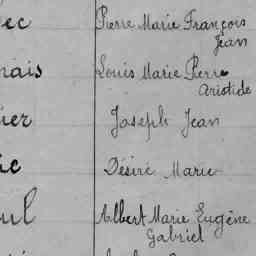 ec Pierre Marie François
Jean
nais Louis Marie Pierre
Aristide
ier Joseph Jean
ic Désiré Marie
ul Albert Marie Eugène
Gabriel